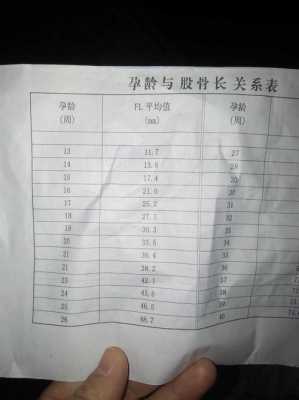 孕龄与 股骨长 关系表
孕龄 FL 平均值 孕龄
(周) (mm) (周)
13 11.7 27
14 13.8
15 17.4
16 21.0
17 25.2 31
18 27.1 32
19 30.3 33
20 33.5 34
21 36.4 35
21 39.2 36
23 42.1 37
24 45.6 38
25 46.5 39
26 48.7 40